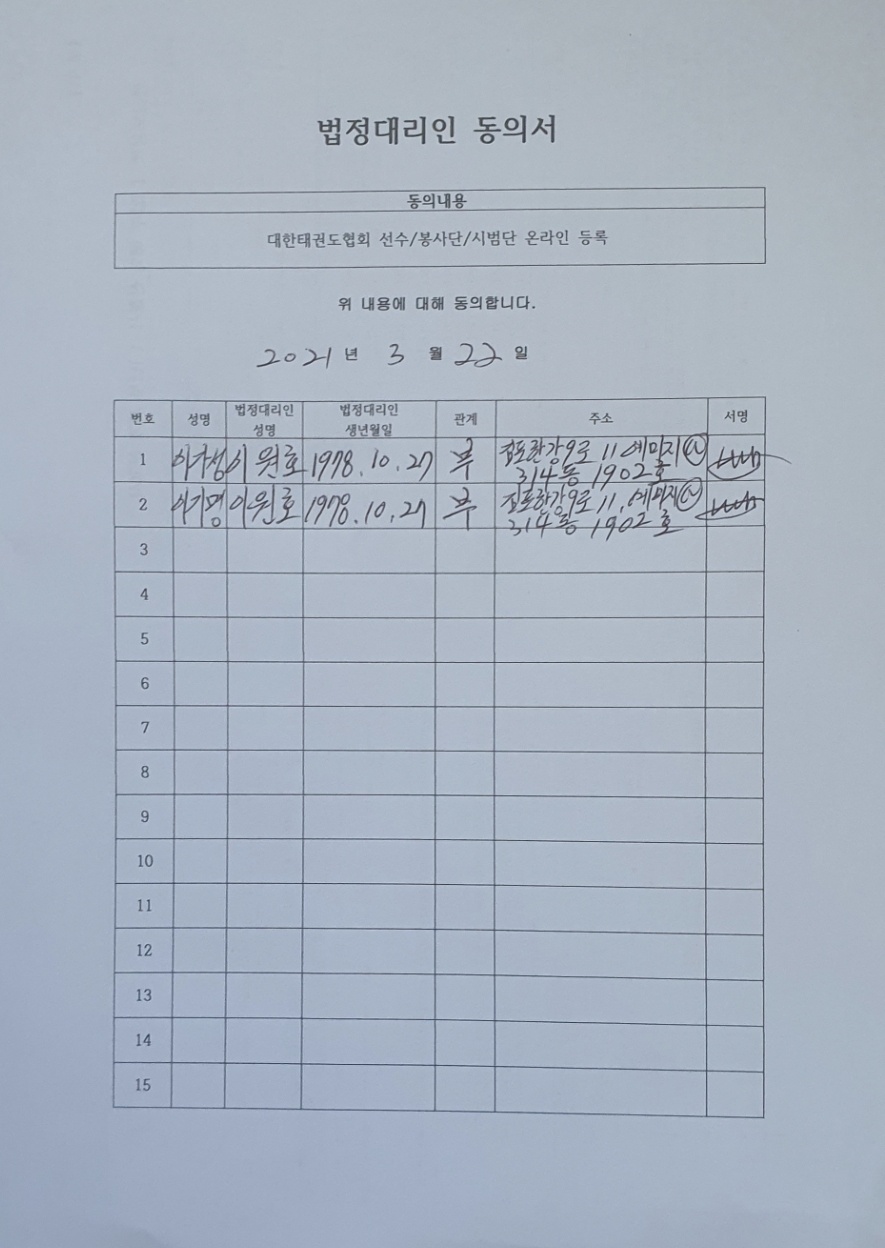 법정대리인 동의서
동의내용
대한태권도협회 선수/봉사단/시범단 온라인 등록
위 내용에 대해 동의합니다.
2021 년 3 월 22 일
번호 성명 법정대리인 성명 법정대리인 생년월일 관계 주소 서명
1 이원호 1978.10.27 부 김포한강9로 11 예미지
314동 1902호
2 이원호 1978.10.27 부 김포한강9로 11, 예미지
314동 1902호
3
4
5
6
7
8
9
10
11
12
13
14
15